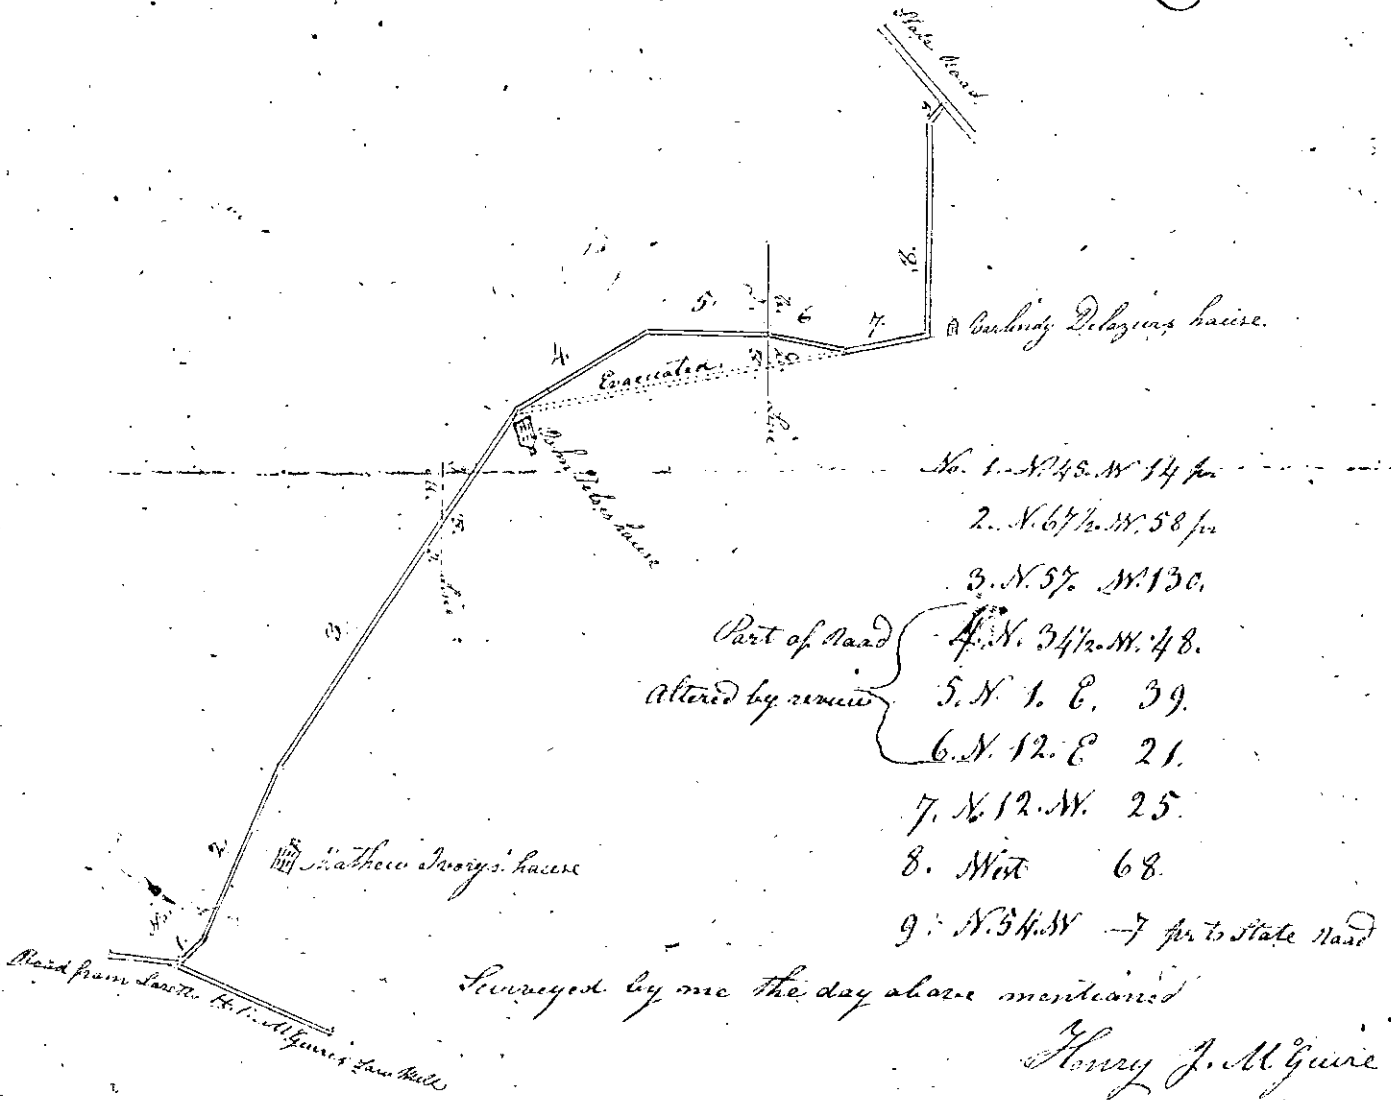 State Road
9.
8.
5.
6
7.
4.
Evacuated
Delozier's house.
Line
John
house
3
Line
2.
Mathew Ivory's house
1.
Road from Loretto to
McGuire's Saw Mill
No. 1. N. 48. W 14 pr
2. N. 67½. W. 58 pr
3. N. 57. W. 130.
Part of Road
4. N. 34½. W. 48.
Altered by review
5. N. 1. E. 39.
6. N. 12. E 21.
7. N. 12. W. 25.
8. West 68.
9. N. 54. W 7 pr to State Road
Surveyed by me the day above mentioned
Henry J. McGuire